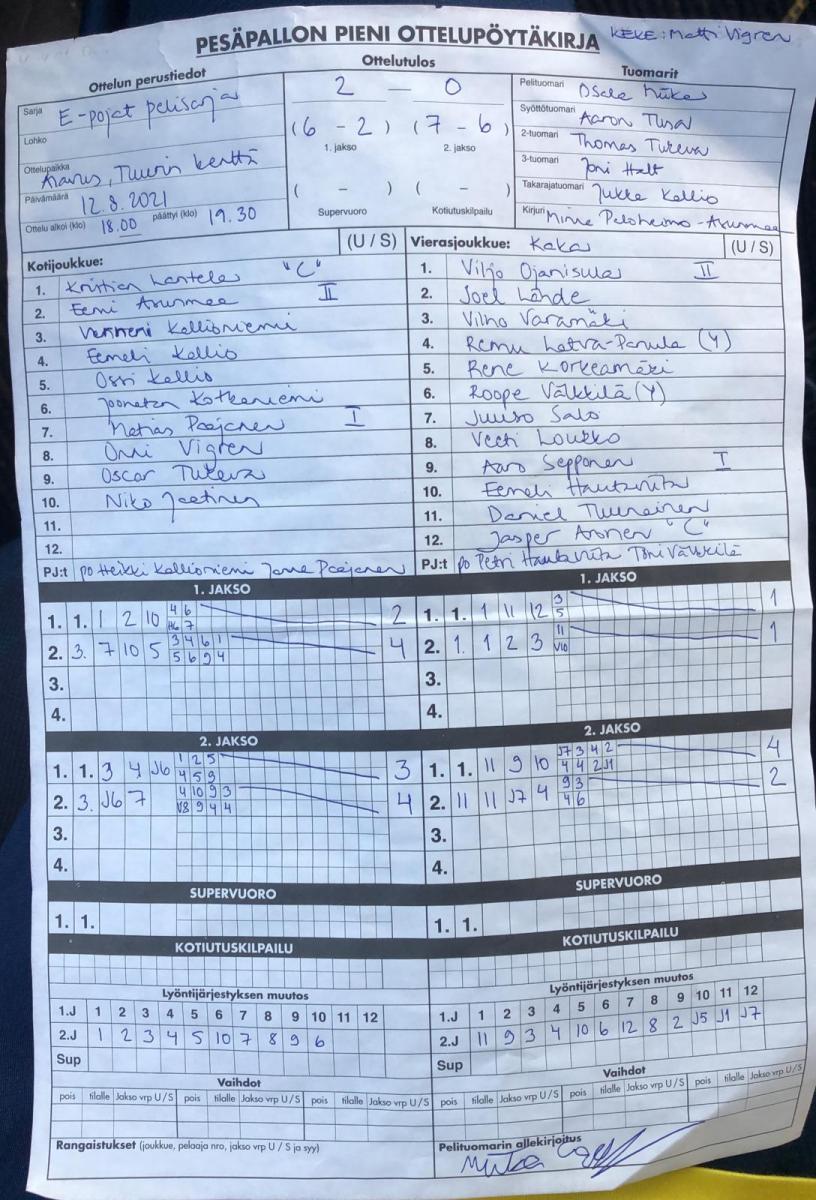 PESÄPALLON PIENI OTTELUPÖYTÄKIRJA KEKE: Matti Vigren
Ottelun perustiedot
Sarja E-pojat pelisarja
Lohko
Ottelupaikka Alavus, Tuurin kenttä
Päivämäärä 12.8.2021
Ottelu alkoi (klo) 18.00 päättyi (klo) 19.30
Ottelutulos
2 — 0
(6 - 2) (7 - 6)
1. jakso 2. jakso
( - ) ( - )
Supervuoro Kotiutuskilpailu
Tuomarit
Pelituomari
Syöttötuomari Aaron
2-tuomari Thomas Tukeva
3-tuomari Joni
Takarajatuomari Jukka Kallio
Kirjuri Minna Peloheimo-Asunmaa
Kotijoukkue: (U / S)
1. Kristian Lantela "C"
2. Eemi Asunmaa II
3. Kallioniemi
4. Eemeli Kallio
5. Ossi Kallio
6. Joonatan Kotkaniemi
7. Matias Paajanen I
8. Onni Vigren
9. Oscar Tukeva
10. Niko Jaatinen
11.
12.
PJ:t po Heikki Kallioniemi Janne Paajanen
Vierasjoukkue: KaKa (U / S)
1. Viljo Ojanisula II
2. Joel Lähde
3. Vilho Varamäki
4. Remu Latva-Panula (Y)
5. Rene Korkeamäki
6. Roope Välkkilä (Y)
7. Juuso Salo
8. Veeti Loukko
9. Aaro Sepponen I
10. Eemeli Hautaviita
11. Daniel Tuunainen
12. Jasper Aronen "C"
PJ:t po Petri Hautaviita Toni Välkkilä
1. JAKSO
1. 1. 1 2 10 4 6 2
H6 7
2. 3. 7 10 5 3 4 6 1 4
5 6 9 4
3.
4.
1. JAKSO
1. 1. 1 11 12 3 1
5
2. 1. 1 2 3 11 1
V10
3.
4.
2. JAKSO
1. 1. 3 4 J6 1 2 5 3
4 5 9
2. 3. J6 7 4 10 9 3 4
V8 9 4 4
3.
4.
2. JAKSO
1. 1. 11 9 10 J7 3 4 2 4
4 4 2 J1
2. 11 11 J7 4 9 3 2
4 6
3.
4.
SUPERVUORO
1. 1.
SUPERVUORO
1. 1.
KOTIUTUSKILPAILU
KOTIUTUSKILPAILU
Lyöntijärjestyksen muutos
1.J 1 2 3 4 5 6 7 8 9 10 11 12
2.J 1 2 3 4 5 10 7 8 9 6
Sup
Lyöntijärjestyksen muutos
1.J 1 2 3 4 5 6 7 8 9 10 11 12
2.J 11 9 3 4 10 6 12 8 2 J5 J1 J7
Sup
Vaihdot
pois tilalle Jakso vrp U / S pois tilalle Jakso vrp U / S pois tilalle Jakso vrp U / S
Vaihdot
pois tilalle Jakso vrp U / S pois tilalle Jakso vrp U / S pois tilalle Jakso vrp U / S
Rangaistukset (joukkue, pelaaja nro, jakso vrp U / S ja syy)
Pelituomarin allekirjoitus